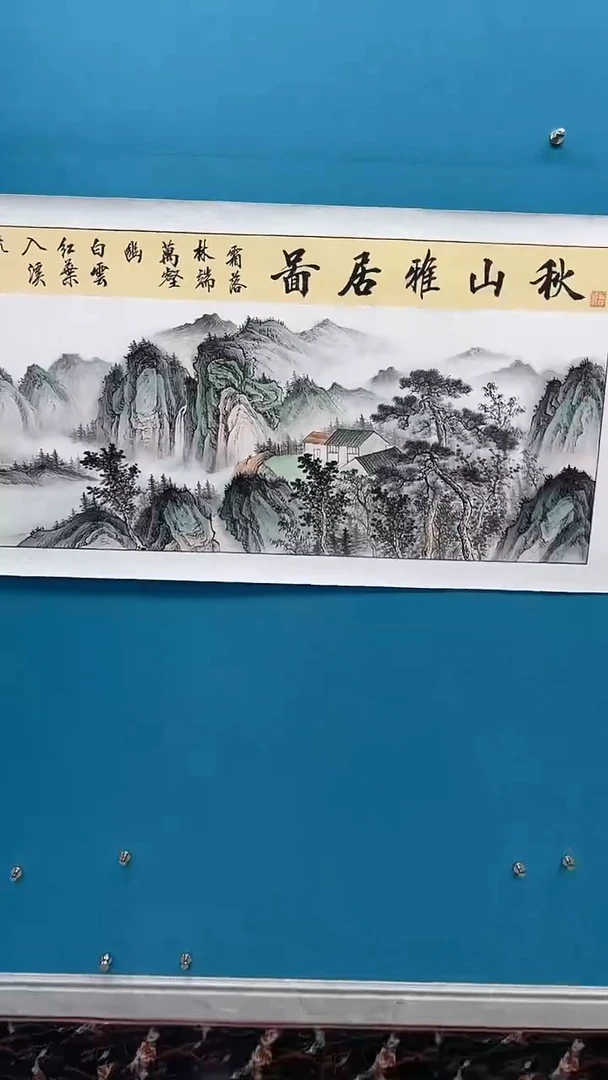 秋山雅居啚
霜落
林端
萬壑
幽
白雲
紅葉
入溪
流